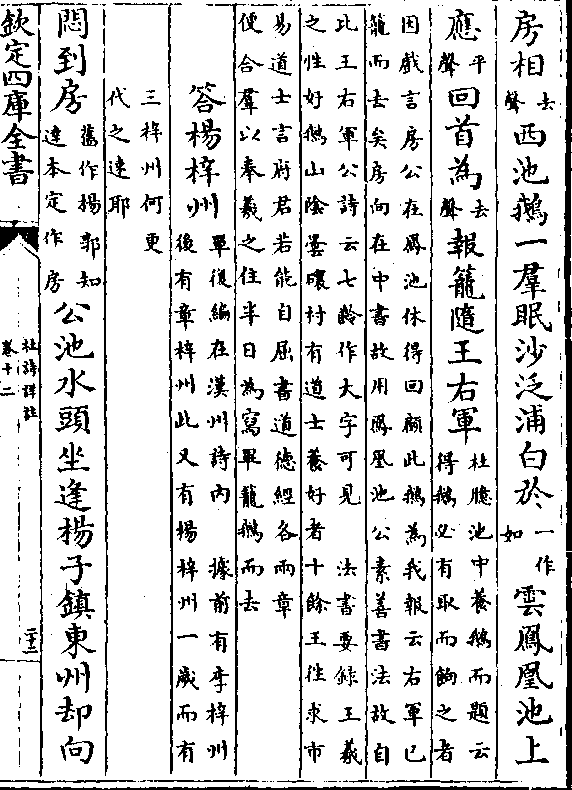 房相去聲西池鵝一羣眠沙泛浦白於一作如雲鳳凰池上
應平聲回首為去聲報籠隨王右軍杜臆池中養鵝而題云得鵝必有取而餉之者
因戲言房公在鳳池休得回顧此鵝為我報云右軍已籠而去矣房向在中書故用鳳凰池公素善書法故自
比王右軍公詩云七齡作大字可見　法書要録王羲之性好鵝山陰曇𥖎村有道士養好者十餘王往求市
易道士言府君若能自屈書道德經各兩章便合羣以奉羲之住半日為寫畢籠鵝而去
答楊梓州單復編在漢州詩内　據前有李梓州後有章梓州此又有楊梓州一歲而有
三梓州何更代之速耶
悶到房舊作楊郭知達本定作房公池水頭坐逢楊子鎮東州却向
欽定四庫全書
杜詩詳註
卷十二
二十三